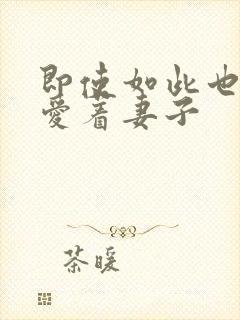 即使如此也
愛着妻子
茶暖